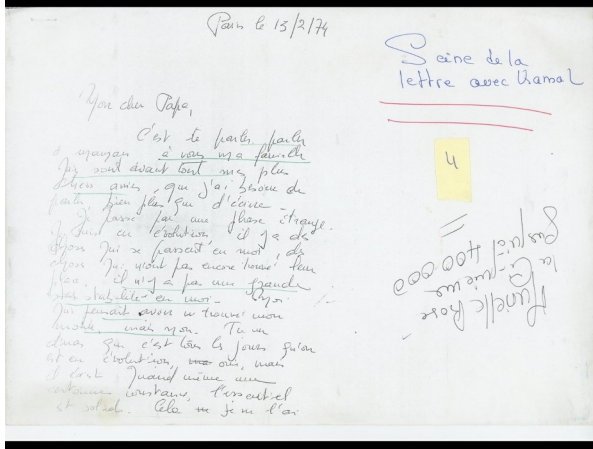 Paris le 13/2/74
Scène de la
lettre avec Kamal
Mon cher Papa,
C'est te parler, parler
à maman à vous ma famille
qui sont avant tout mes plus
chers amis, que j'ai besoin de
parler, bien plus que d'écrire
Je passe par une phase étrange.
Je suis en évolution il y a des
choses qui se passent en moi, des
choses qui n'ont pas encore trouvé leur
place. il n'y a pas une grande
stabilité en moi.
qui pensait avoir trouvé mon
mode, mais non. Tu me
diras que c'est tous les jours qu'on
est en évolution, oui, mais
il faut quand même une
certaine constance, l'essentiel
est solide. Cela je ne l'ai
4
Murielle Rose
la
400 000